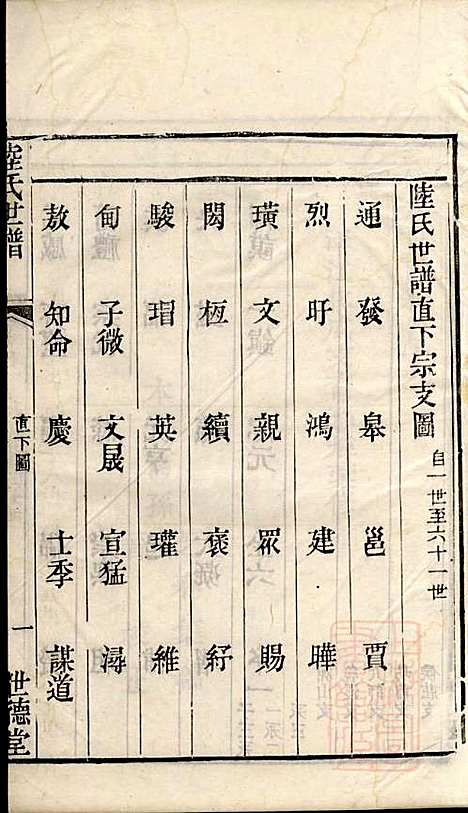 陸氏世譜直下宗支圖 自一世至六十一世
通 發 皐 邕 賈
烈 盱 鴻 建 曄
璜 文 親 眾 賜
閎 恆 續 褒 紓
駿 瑁 英 瓘 維
甸 子微 文晟 宣猛 潯
敖 知命 慶 士季 謀道
陸氏世譜 直下圖 一 世德堂